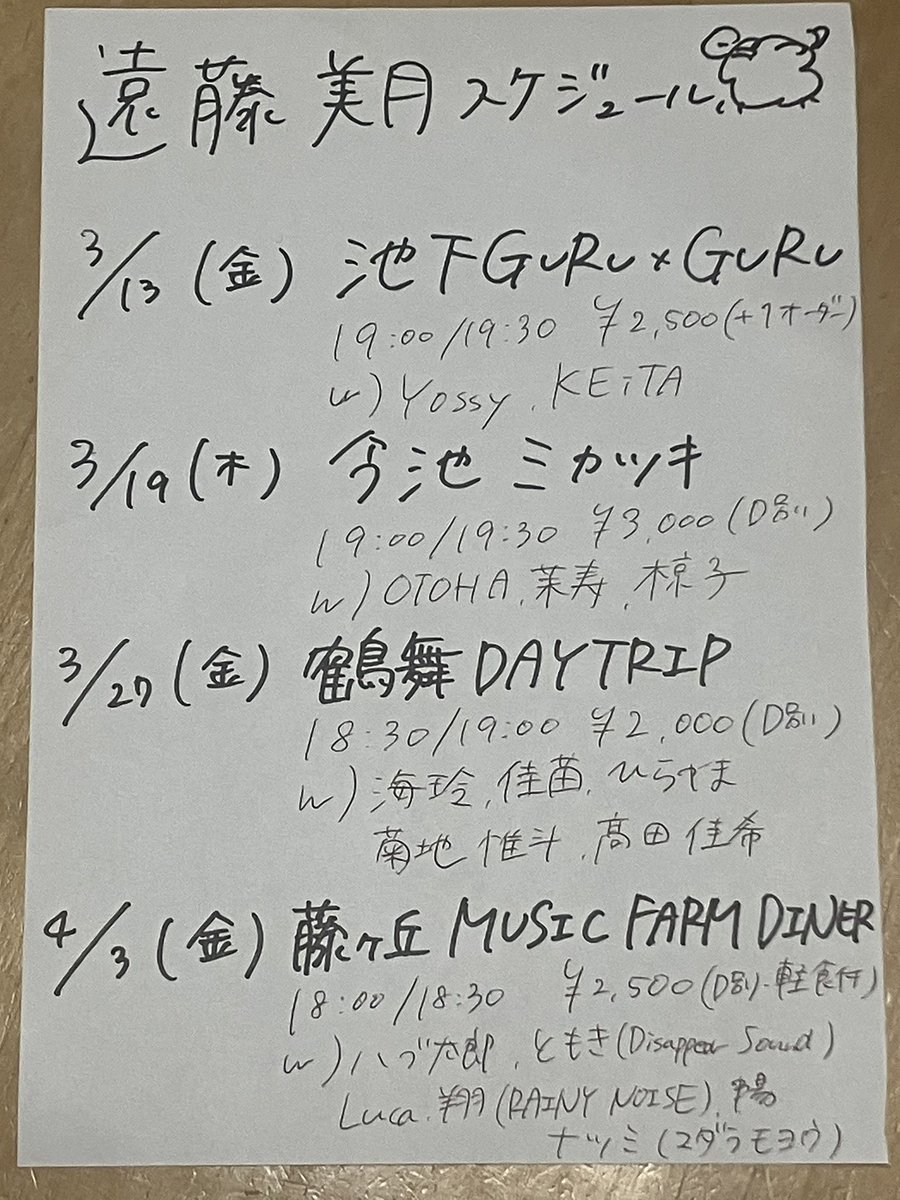 遠藤 美月 スケジュール
3/13 (金) 池下GURU×GURU
19:00/19:30 ¥2,500(+1オーダー)
w) Yossy、KEiTA
3/19 (木) 今池 ミカヅキ
19:00/19:30 ¥3,000(D別)
w) OTOHA、茉寿、椋子
3/27 (金) 鶴舞 DAYTRIP
18:30/19:00 ¥2,000(D別)
w) 海玲、佳苗、ひらさま
菊地 惟斗、髙田 佳希
4/3 (金) 藤ヶ丘 MUSIC FARM DINER
18:00/18:30 ¥2,500(D別・軽食付)
w) ハブ太郎、ともき(Disappear Sound)
Luca、翔(RAINY NOISE)、
ナツミ(マダラモヨウ)